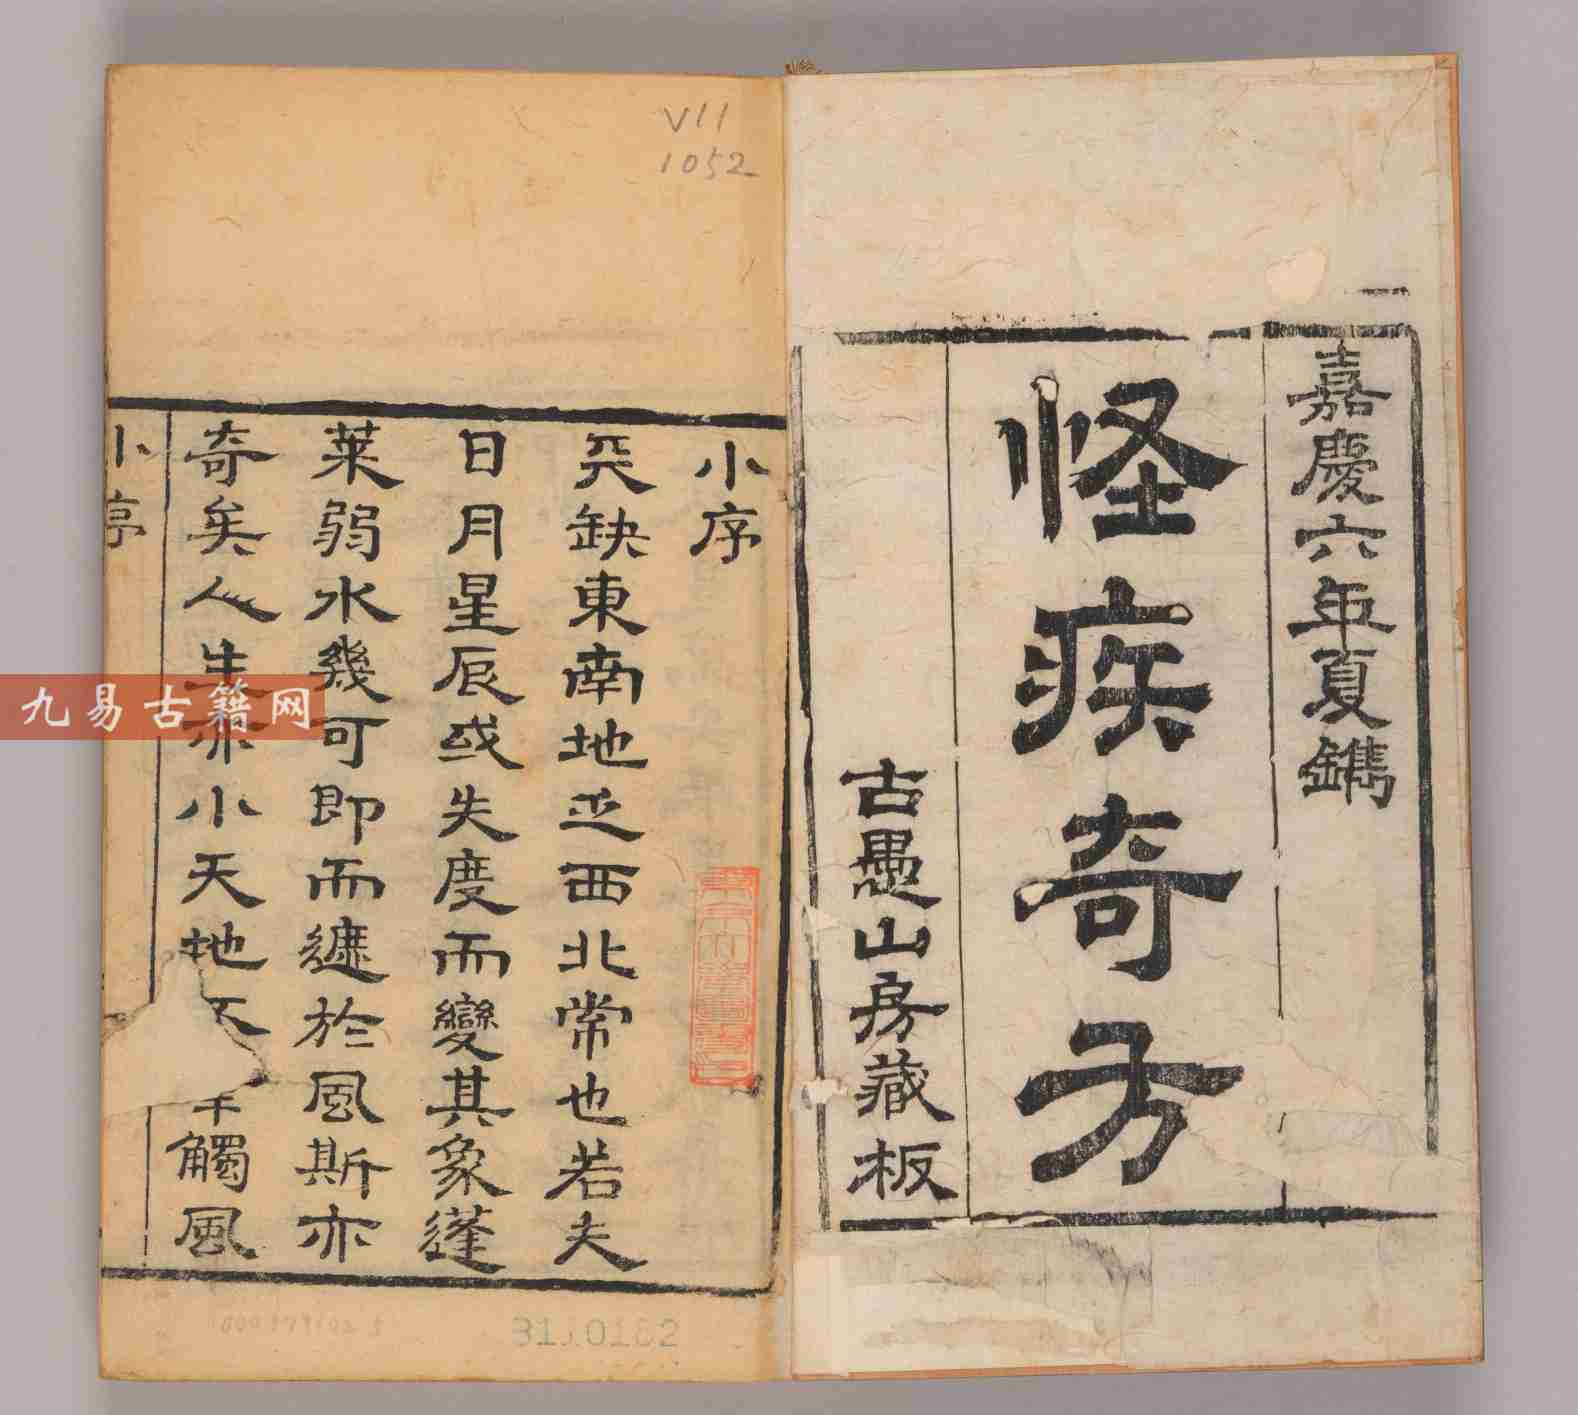 嘉慶六年夏鐫
怪疾奇方
古愚山房藏板
V11
1052
小序
天缺東南地乏西北常也若夫
日月星辰或失度而變其象蓬
萊弱水幾可即而遮於風斯亦
奇矣人生亦小天地不干觸風
小序
九易古籍网